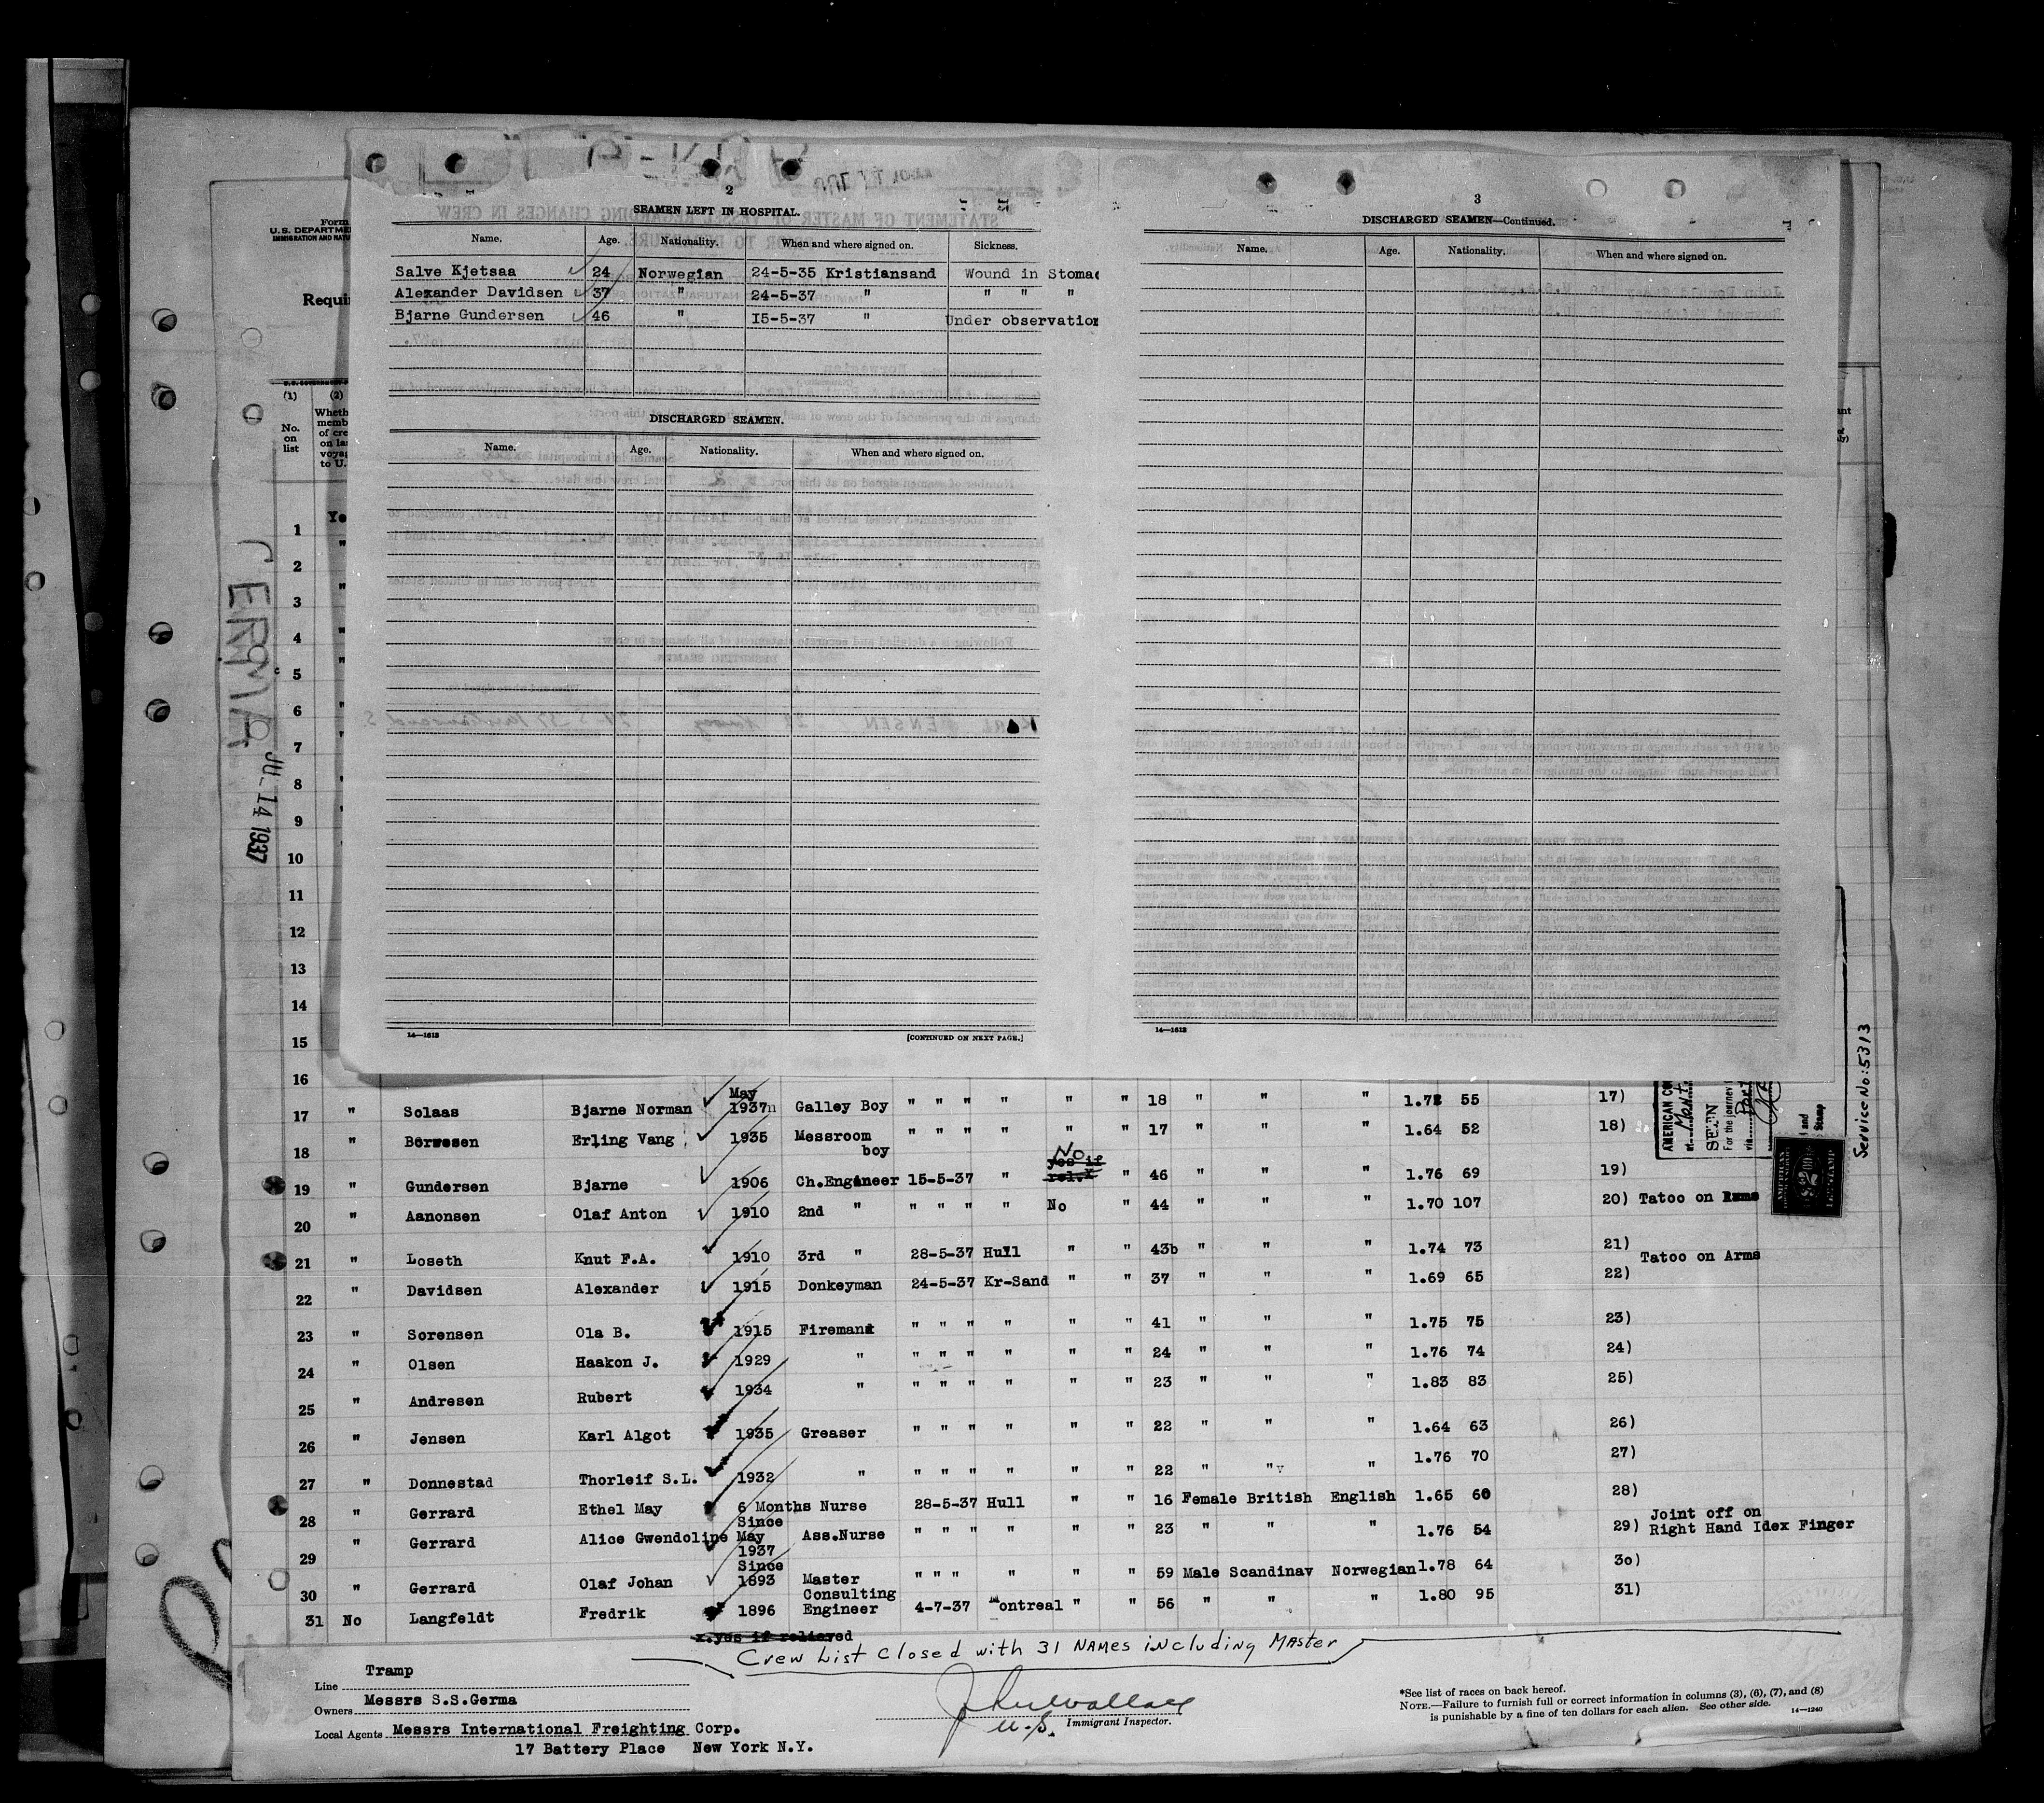 2
SEAMEN LEFT IN HOSPITAL.
Name. Age. Nationality. When and where signed on. Sickness.
Salve Kjetsaa 24 Norwegian 24-5-35 Kristiansand Wound in Stomac
Alexander Davidsen 37 " 24-5-37 " " " "
Bjarne Gundersen 46 " 15-5-37 " Under observation
DISCHARGED SEAMEN.
Name. Age. Nationality. When and where signed on.
14—1613 [CONTINUED ON NEXT PAGE.]
3
DISCHARGED SEAMEN—Continued.
Name. Age. Nationality. When and where signed on.
14—1613
Form
U.S. DEPARTME
IMMIGRATION AND NATU
Requi
(1) (2)
No. on list
Wheth
memb
of cre
on la
voyag
to U.
GERMA
JUL 14 1937
1 Ye
2 "
3 "
4 "
5 "
6 "
7 "
8 "
9 "
10
11
12
13
14
15
16
17 " Solaas Bjarne Norman May 1937 Galley Boy " " " " " " 18 " " " 1.72 55 17)
18 " Borwesen Erling Vang 1935 Messroom boy " " " " " " 17 " " " 1.64 52 18)
19 " Gundersen Bjarne 1906 Ch.Engineer 15-5-37 " No yes if rel.x " 46 " " " 1.76 69 19)
20 " Aanonsen Olaf Anton 1910 2nd " " " " " No " 44 " " " 1.70 107 20) Tatoo on Arms
21 " Loseth Knut F.A. 1910 3rd " 28-5-37 Hull " " 43b " " " 1.74 73 21)
22 " Davidsen Alexander 1915 Donkeyman 24-5-37 Kr-Sand " " 37 " " " 1.69 65 22) Tatoo on Arms
23 " Sorensen Ola B. 1915 Fireman " " " " " " 41 " " " 1.75 75 23)
24 " Olsen Haakon J. 1929 " " " " " " " 24 " " " 1.76 74 24)
25 " Andresen Rubert 1934 " " " " " " " 23 " " " 1.83 83 25)
26 " Jensen Karl Algot 1935 Greaser " " " " " " 22 " " " 1.64 63 26)
27 " Donnestad Thorleif S.L. 1932 " " " " " " " 22 " " " 1.76 70 27)
28 " Gerrard Ethel May 6 Months Nurse 28-5-37 Hull " " 16 Female British English 1.65 60 28)
29 " Gerrard Alice Gwendoline Since May 1937 Ass.Nurse " " " " " " 23 " " " 1.76 54 29) Joint off on Right Hand Idex Finger
30 " Gerrard Olaf Johan Since 1893 Master " " " " " " 59 Male Scandinav Norwegian 1.78 64 30)
31 No Langfeldt Fredrik 1896 Consulting Engineer 4-7-37 Montreal " " 56 " " " 1.80 95 31)
x.yes if relieved
Crew List Closed with 31 NAMES iNcluding MAster
AMERICAN CO
at Mont
SEEN
For the journey
via Port
and
Stamp
AMERICAN
$2.00
FEE STAMP
Service No: 5313
Line Tramp
Owners Messrs S.S.Germa
Local Agents Messrs International Freighting Corp.
17 Battery Place New York N.Y.
U.S. Immigrant Inspector.
*See list of races on back hereof.
NOTE.—Failure to furnish full or correct information in columns (3), (6), (7), and (8)
is punishable by a fine of ten dollars for each alien. See other side. 14—1240